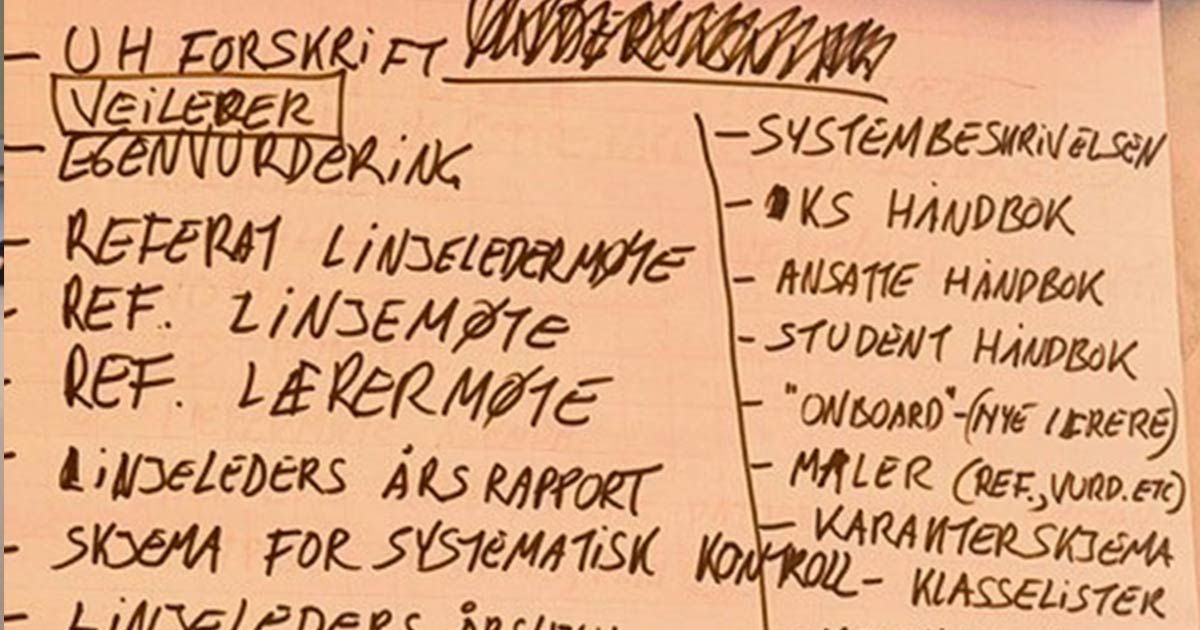 - UH FORSKRIFT
VEILEDER
- EGENVURDERING
- REFERAT LINJELEDERMØTE
- REF. LINJEMØTE
- REF. LÆRERMØTE
- LINJELEDERS ÅRSRAPPORT
- SKJEMA FOR SYSTEMATISK KONTROLL
- LINJELEDERS
- SYSTEMBESKRIVELSEN
- KS HÅNDBOK
- ANSATTE HÅNDBOK
- STUDENT HÅNDBOK
- "ONBOARD"-(NYE LÆRERE)
- MALER (REF., VURD. ETC)
- KARAKTERSKJEMA
- KLASSELISTER